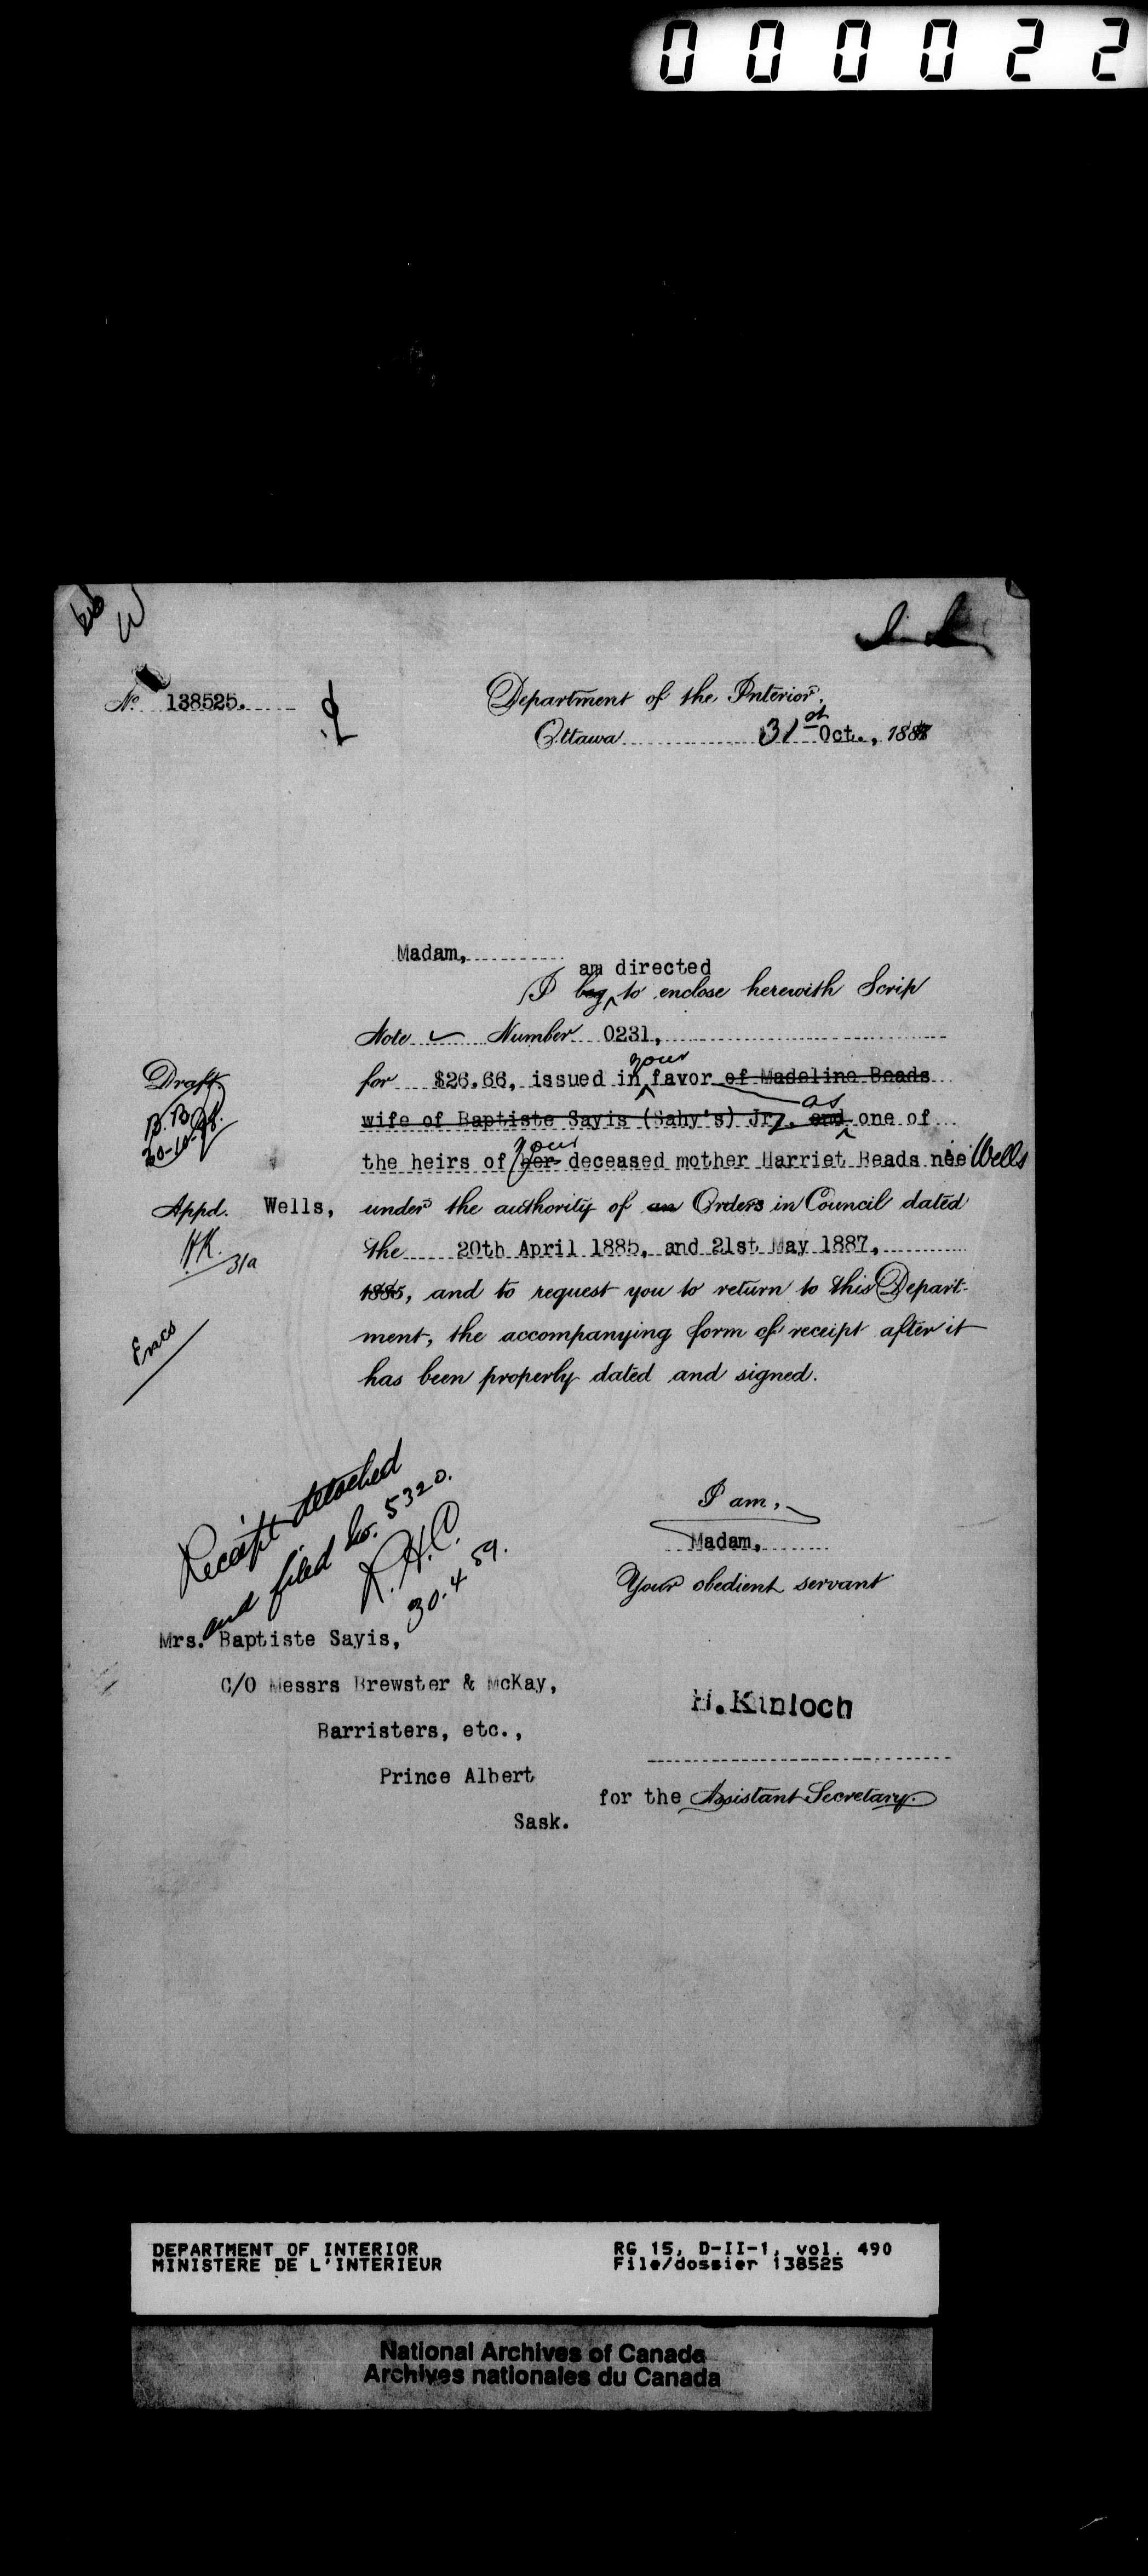 000022
No 138525.
Department of the Interior,
Ottawa 31st Oct., 188
Madam,
am directed
I beg to enclose herewith Scrip
Note Number 0231,
your
for $26.66, issued in favor of Madeline Beads
as
wife of Baptiste Sayis (Sahy's) Jr. and one of
your
the heirs of her deceased mother Harriet Beads née Wells
Wells, under the authority of an Orders in Council dated
the 20th April 1885, and 21st May 1887,
1885, and to request you to return to this Depart-
ment, the accompanying form of receipt after it
has been properly dated and signed.
Draft
Appd.
H.K.
31a
Encs
Receipt detached
and filed No. 5320.
R.H.C.
30.4.59.
I am,
Madam,
Your obedient servant
Mrs. Baptiste Sayis,
C/O Messrs Brewster & McKay,
Barristers, etc.,
Prince Albert
Sask.
H. Kinloch
for the Assistant Secretary.
DEPARTMENT OF INTERIOR
MINISTERE DE L'INTERIEUR
RG 15, D-II-1, vol. 490
File/dossier 138525
National Archives of Canada
Archives nationales du Canada